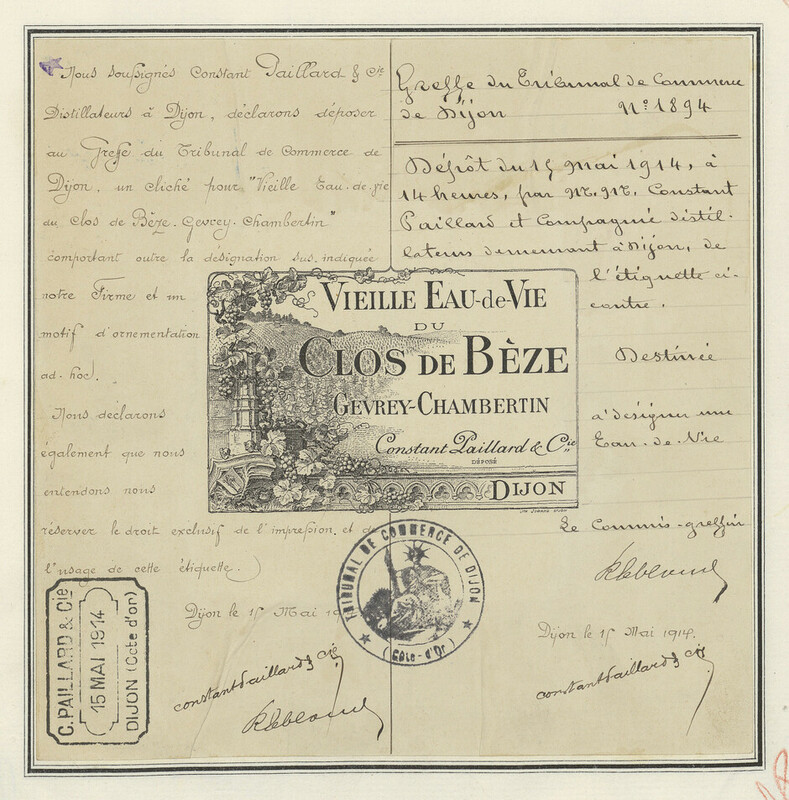 Nous soussignés Constant Paillard & Cie
Distillateurs à Dijon, déclarons déposer
au Greffe du Tribunal de Commerce de
Dijon, un cliché pour "Vieille Eau-de-vie
du Clos de Bèze-Gevrey-Chambertin"
comportant outre la désignation sus-indiquée
notre Firme et un
motif d'ornementation
ad-hoc.
Nous déclarons
également que nous
entendons nous
réserver le droit exclusif de l'impression, et de
l'usage de cette étiquette.
Dijon le 15 Mai
constant Paillard & Cie
C. PAILLARD & Cie
15 MAI 1914
DIJON (Cote d'or)
VIEILLE EAU-de-VIE
DU
CLOS DE BÈZE
GEVREY-CHAMBERTIN
Constant Paillard & Cie
DÉPOSÉ
DIJON
TRIBUNAL DE COMMERCE DE DIJON
(Côte-d'Or)
Greffe du Tribunal de Commerce
de Dijon N° 1894
Dépôt du 15 Mai 1914, à
14 heures, par M.M. Constant
Paillard et Compagnie distil-
lateurs demeurant à Dijon, de
l'étiquette ci-
contre.
Destinée
à désigner une
Eau-de-Vie
Le Commis-greffier
Dijon le 15 Mai 1914.
constant Paillard & Cie